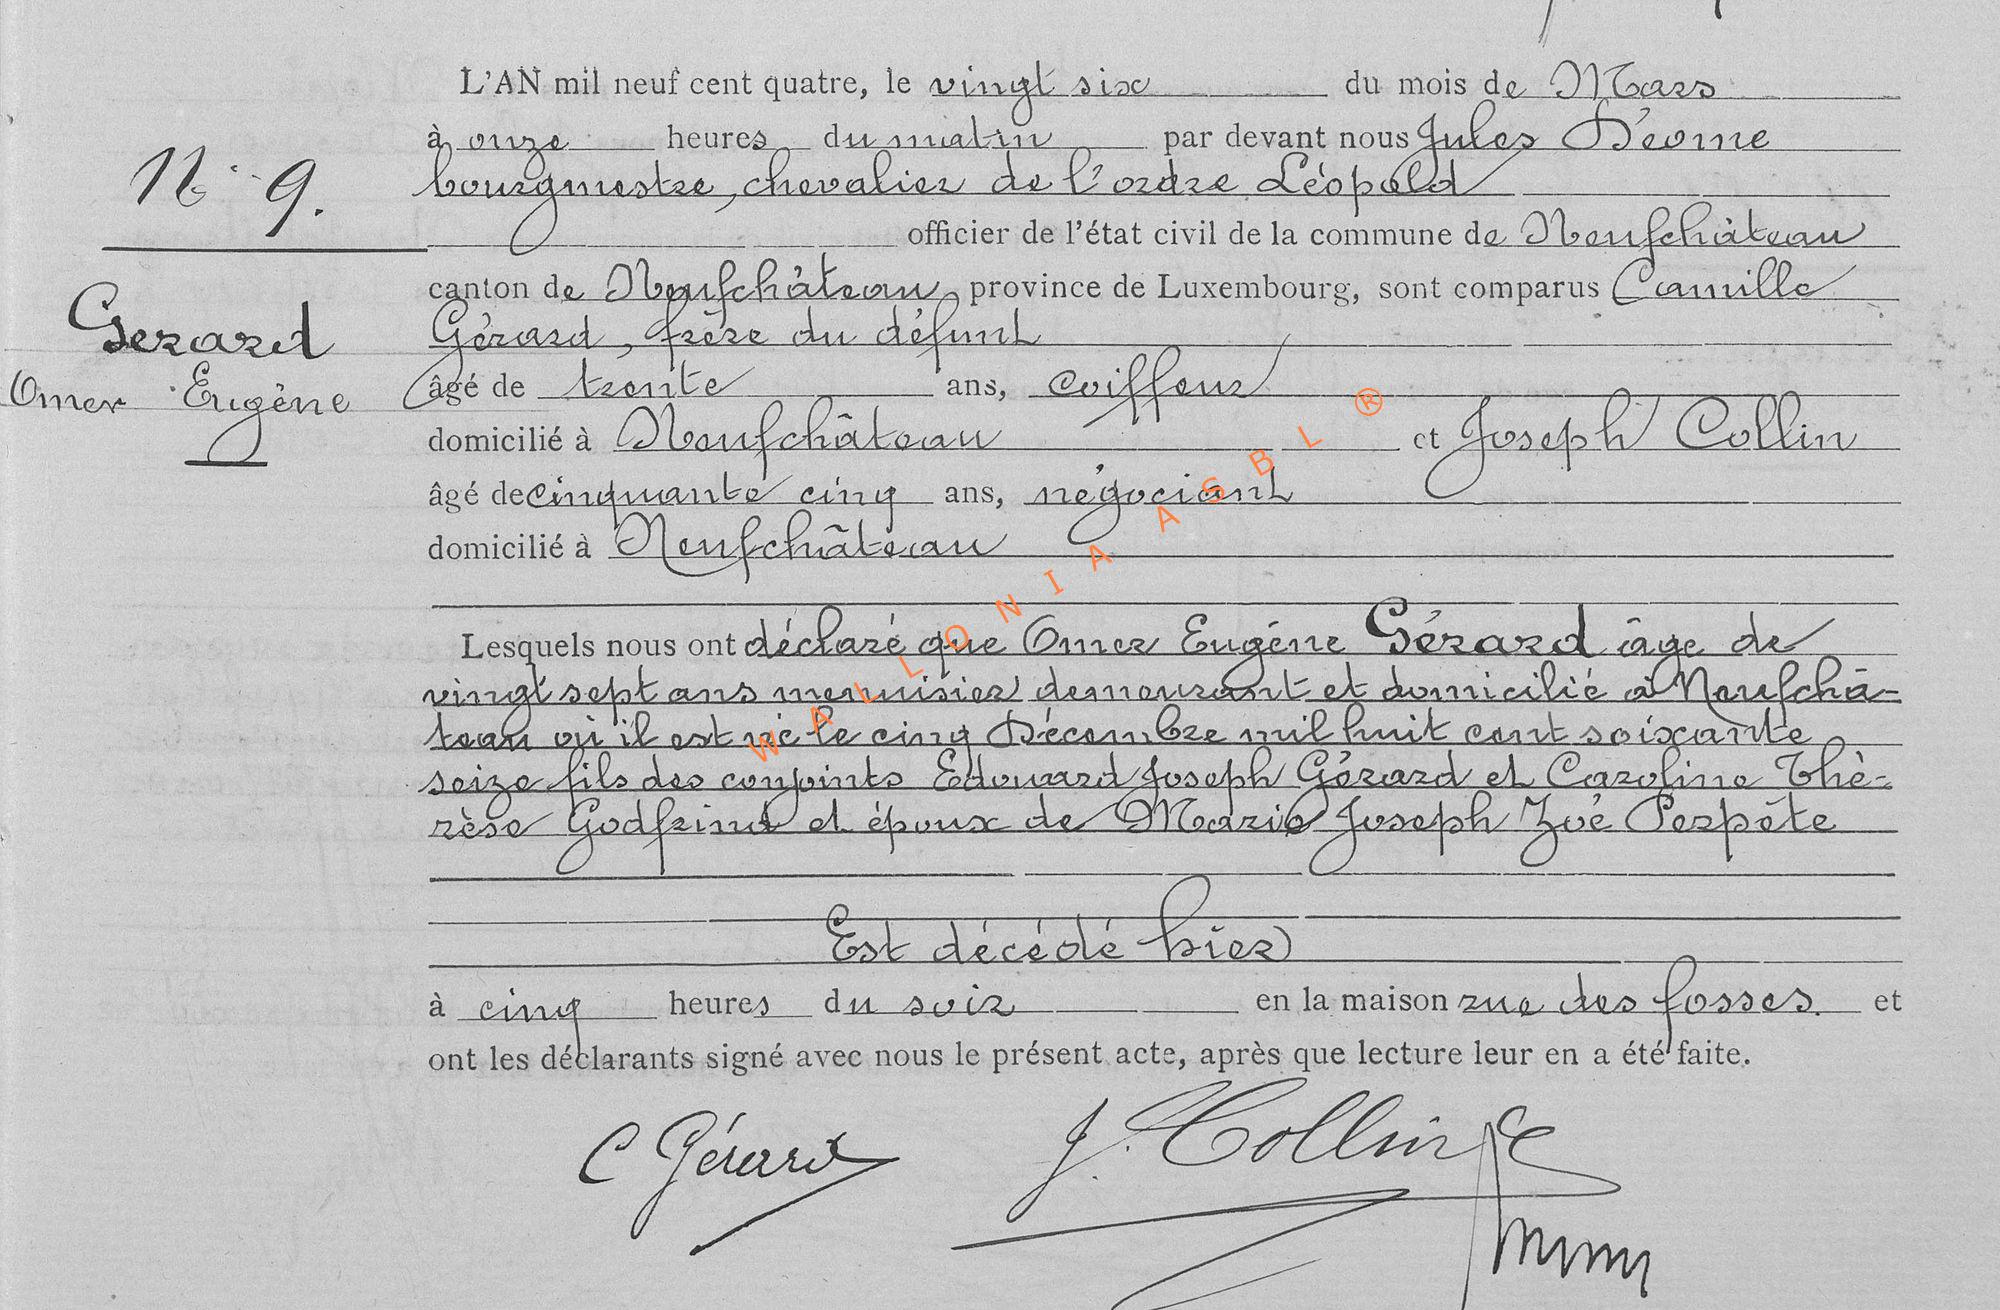 L'AN mil neuf cent quatre, le vingt six du mois de Mars
à onze heures du matin par devant nous Jules Déome
bourgmestre, chevalier de l'ordre Léopold
N° 9.
officier de l'état civil de la commune de Neufchâteau
canton de Neufchâteau, province de Luxembourg, sont comparus Camille
Gérard, frère du défunt
Gérard
Omer Eugène
âgé de trente ans, coiffeur
domicilié à Neufchâteau et Joseph Collin
âgé de cinquante cinq ans, négociant
domicilié à Neufchâteau
Lesquels nous ont déclaré que Omer Eugène Gérard âge de
vingt sept ans menuisier demeurant et domicilié à Neufchâ-
teau où il est né le cinq Décembre mil huit cent soixante
seize fils des conjoints Edouard Joseph Gérard et Caroline Thé-
rèse Godfrind et époux de Marie Joseph Zoé Perpète
Est décédé hier
à cinq heures du soir en la maison rue des fosses. et
ont les déclarants signé avec nous le présent acte, après que lecture leur en a été faite.
C Gérard J. Collin
WALLONIA ASBL ®